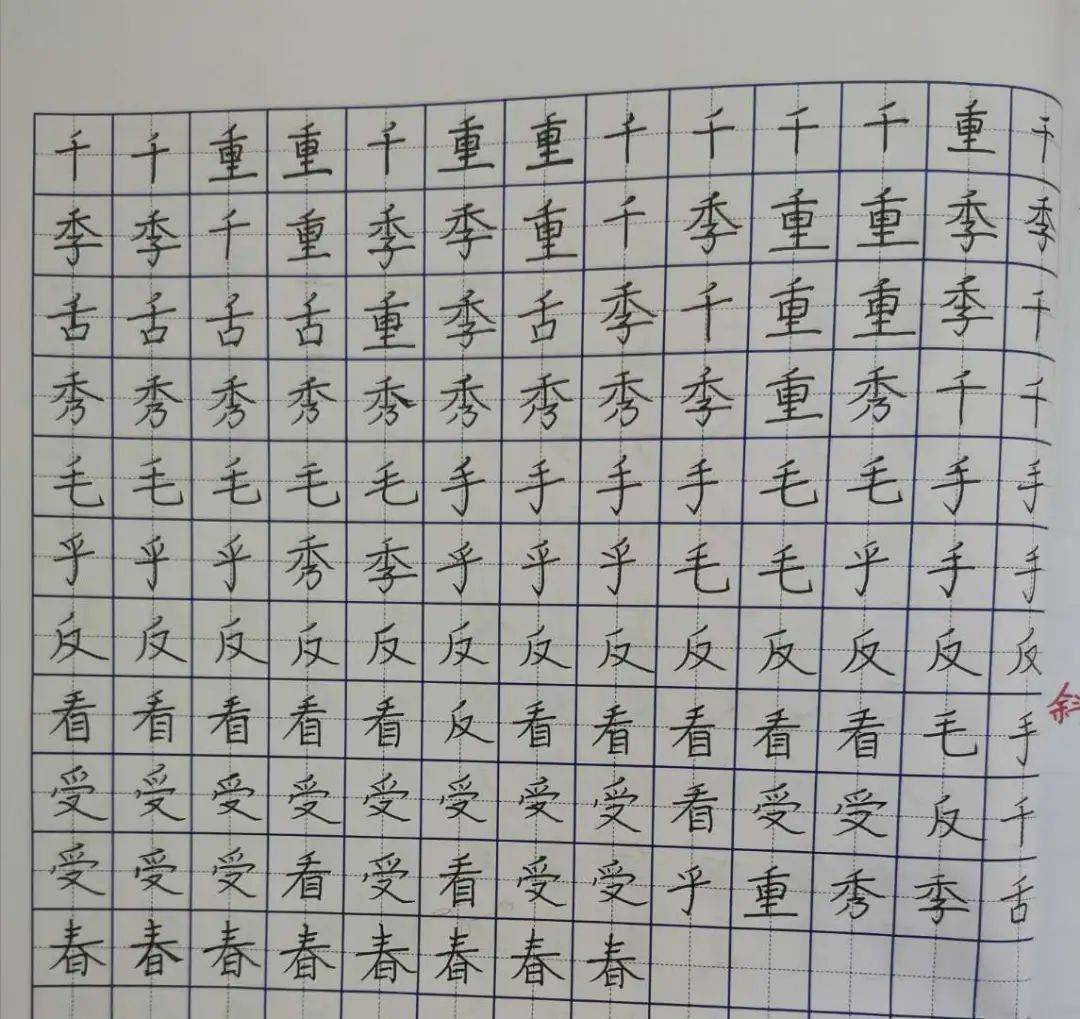 千千重重千重重千千千千重千
季季千重季季重千季重重季季
舌舌舌舌重季舌季千重重季千
秀秀秀秀秀秀秀秀季重秀千千
毛毛毛毛毛手手手手毛毛手手
乎乎乎秀季乎乎乎毛毛乎手手
反反反反反反反反反反反反反
看看看看看反看看看看看毛手
受受受受受受受受看受受反千
受受受看受看受受乎重秀季舌
春春春春春春春春